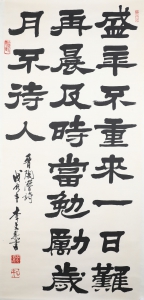 盛年不重來一日難
再晨及時當勉勵歲
月不待人
晉陶潛詩